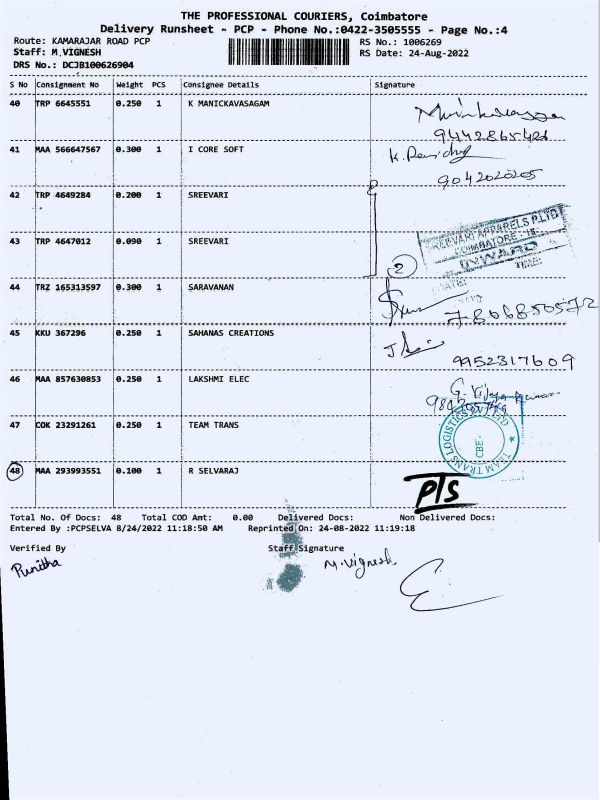 THE PROFESSIONAL COURIERS, Coimbatore
Delivery Runsheet - PCP - Phone No.:0422-3505555 - Page No.:4
Route: KAMARAJAR ROAD PCP
Staff: M.VIGNESH
DRS No.: DCJB100626904
RS No.: 1006269
RS Date: 24-Aug-2022
S No Consignment No Weight PCS Consignee Details Signature
40 TRP 6645551 0.250 1 K MANICKAVASAGAM
9442865426
41 MAA 566647567 0.300 1 I CORE SOFT
9042020205
42 TRP 4649284 0.200 1 SREEVARI
43 TRP 4647012 0.090 1 SREEVARI
SREEVARI APPARELS P.LTD
COIMBATORE - 15.
INWARD
TIME:
2
44 TRZ 165313597 0.300 1 SARAVANAN
7806850572
45 KKU 367296 0.250 1 SAHANAS CREATIONS
9952317609
46 MAA 857630853 0.250 1 LAKSHMI ELEC
G. Vijaya
47 COK 23291261 0.250 1 TEAM TRANS
TEAM TRANS LOGISTICS P LTD
CBE.
48 MAA 293993551 0.100 1 R SELVARAJ
PTS
Total No. Of Docs: 48 Total COD Amt: 0.00 Delivered Docs: Non Delivered Docs:
Entered By :PCPSELVA 8/24/2022 11:18:50 AM Reprinted On: 24-08-2022 11:19:18
Verified By Staff Signature
Punitha M.Vignesh